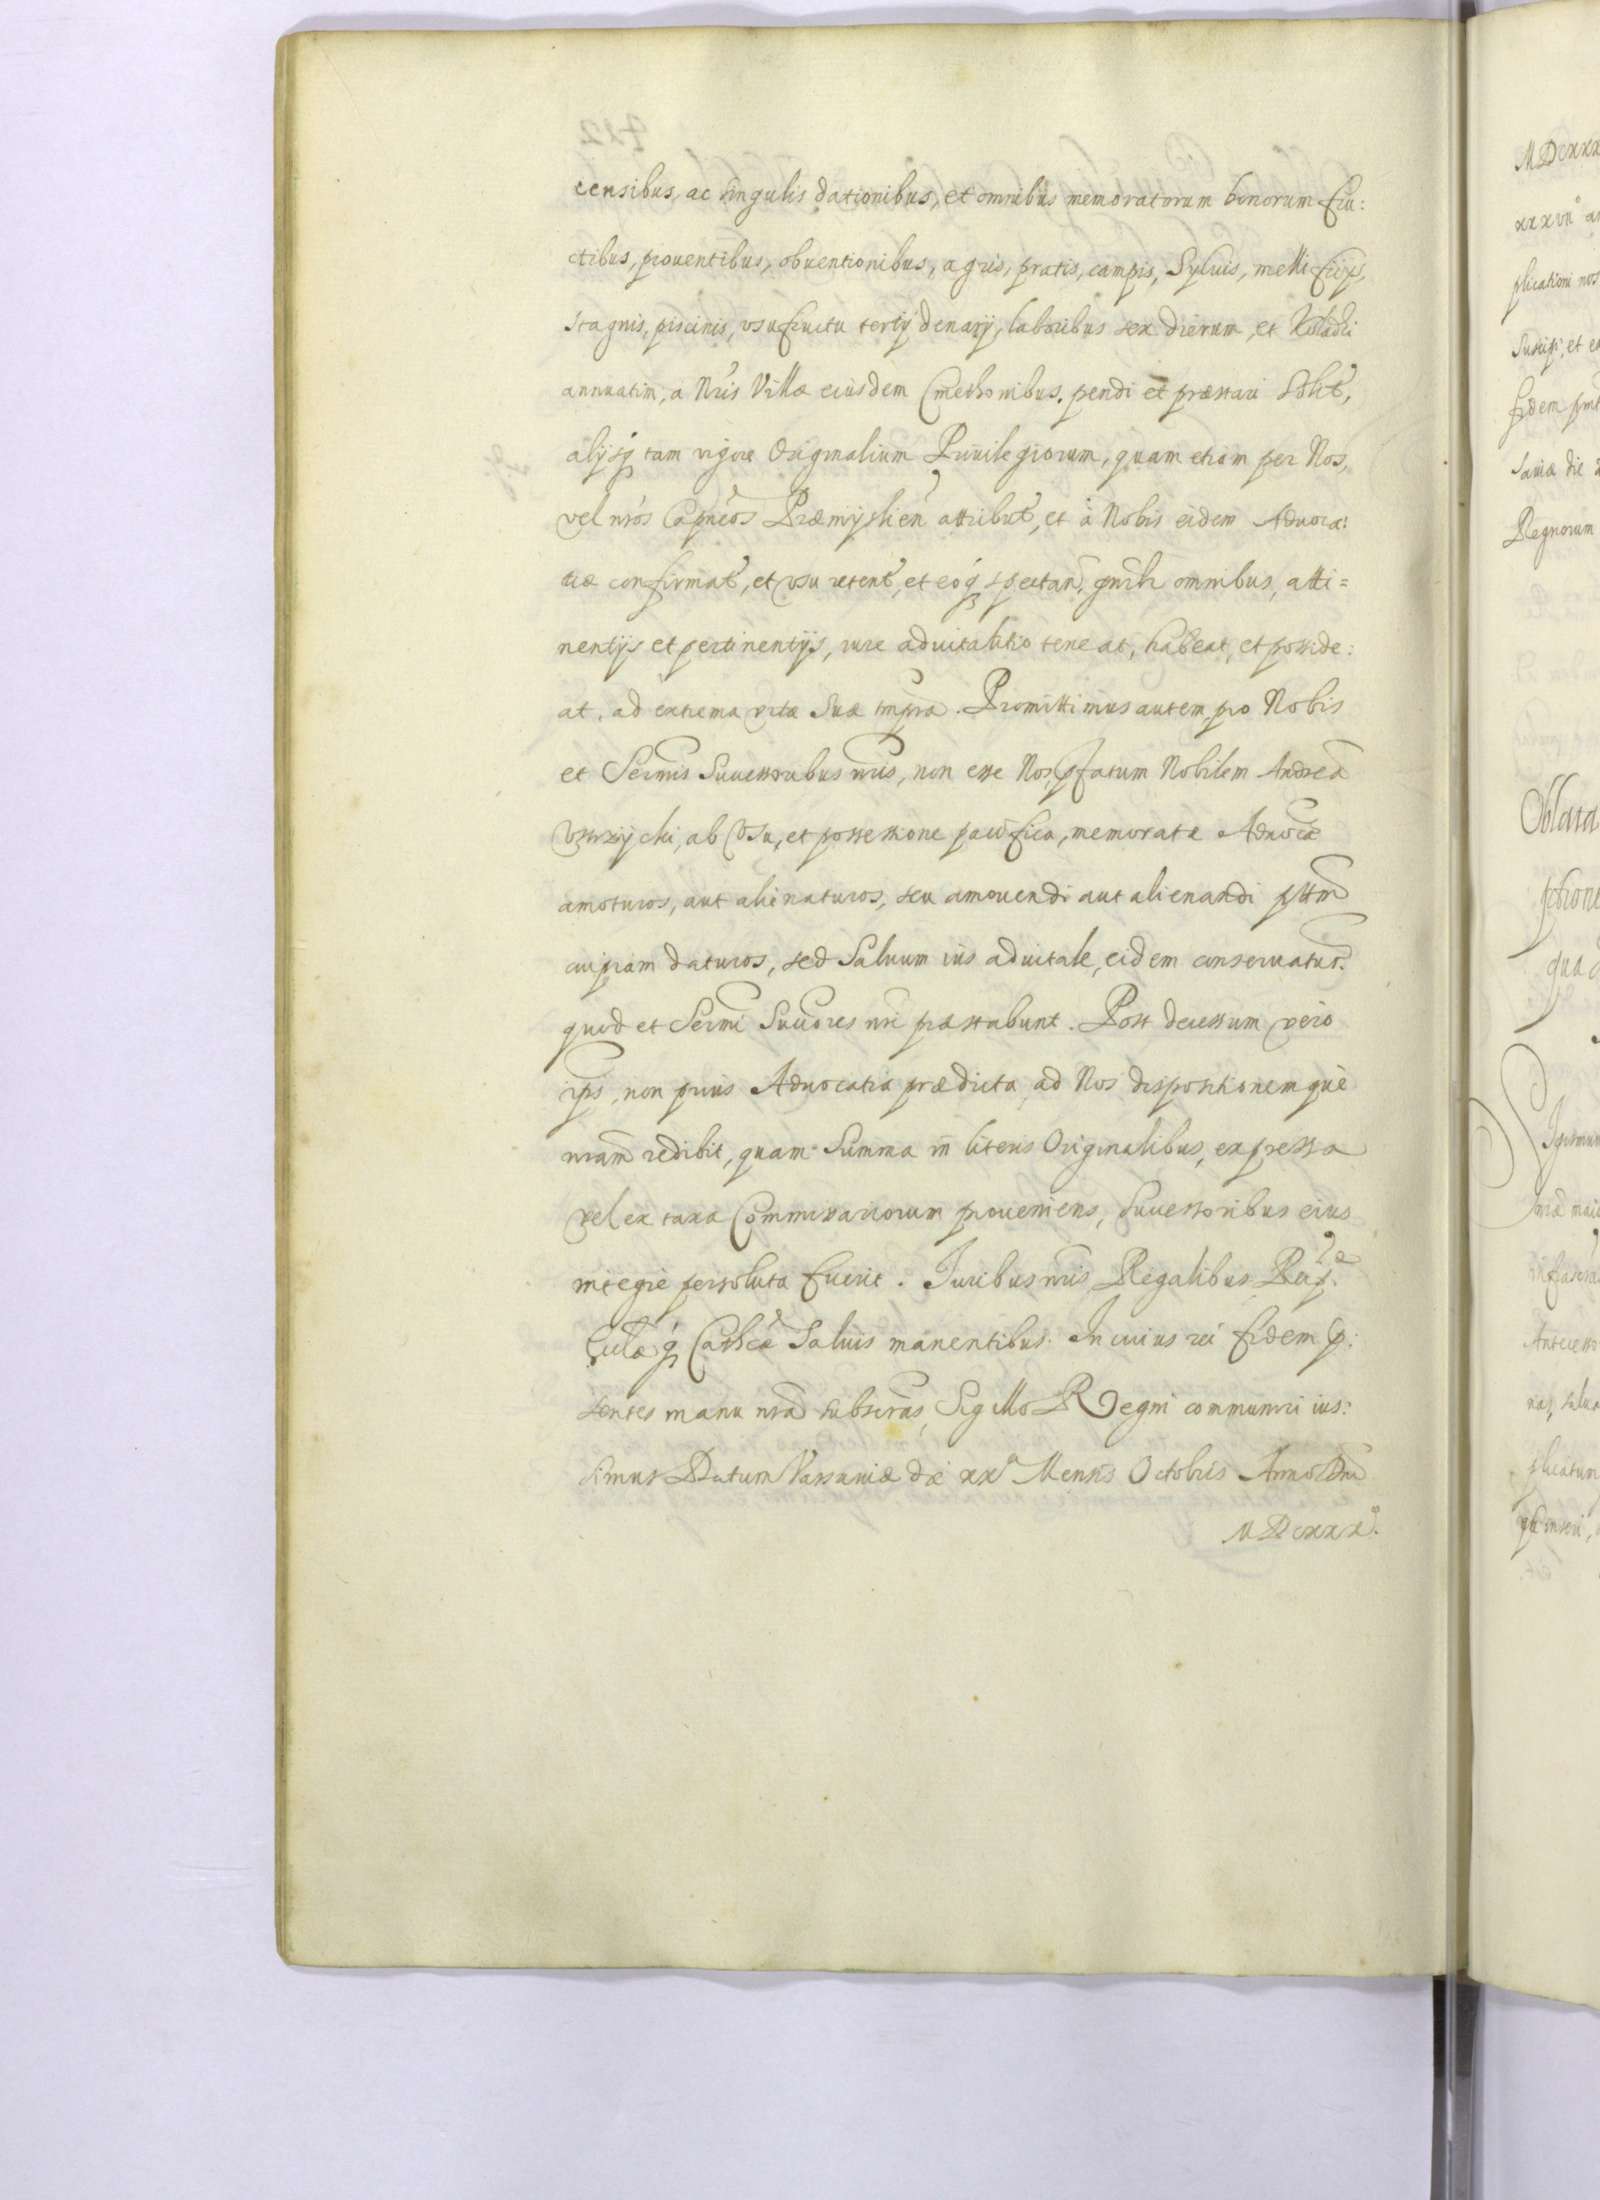 censibus, ac singulis dationibus, et omnibus memoratorum bonorum fru:
ctibus, prouentibus, obuentionibus, agris, pratis, campis, Syluis, mellificijs,
stagnis, piscinis, vsufructu tertij denarij, laboribus sex dierum, et Koladki
annuatim, a Nris Villæ eiusdem Cmethonibus, pendi et præstari solit,
alijsq tam vigore Originalium Priuilegiorum, quam etiam per Nos,
vel nros Capneos Præmyslien attribut, et à Nobis eidem Aduoca:
tiæ confirmat, et vsu retent, et eoq spectan, gnrlr omnibus, atti=
nentijs et pertinentijs, iure aduitalitio teneat, habeat, et posside:
at, ad extrema vitæ suæ tmpra. Promittimus autem pro Nobis
et Sermis Successoribus nris, non esse Nos pfatum Nobilem Andreã
Vstrzycki, ab Vsu, et possessione pacifica, memoratæ Aduocæ
amoturos, aut alienaturos, seu amouendi aut alienandi pttm
cuipiam daturos, sed Saluum ius aduitale, eidem conseruatur.
quod et Sermi Succores nri præstabunt. Post decessum vero
ips, non prius Aduocatia prædicta, ad Nos dispositionemquè
nram redibit, quam Summa in literis Originalibus, expressa
vel ex taxa Commissariorum proueniens, Successoribus eius
integre persoluta fuerit. Iuribus nris Regalibus Reip.
Ecclæq Cathcæ Saluis manentibus. In cuius rei fidem p:
sentes manu nra subscras, Sigillo Regni communiri ius:
simus Datum Varsauiæ die xxa Mensis Octobris Anno Dni
MDcxxxo.